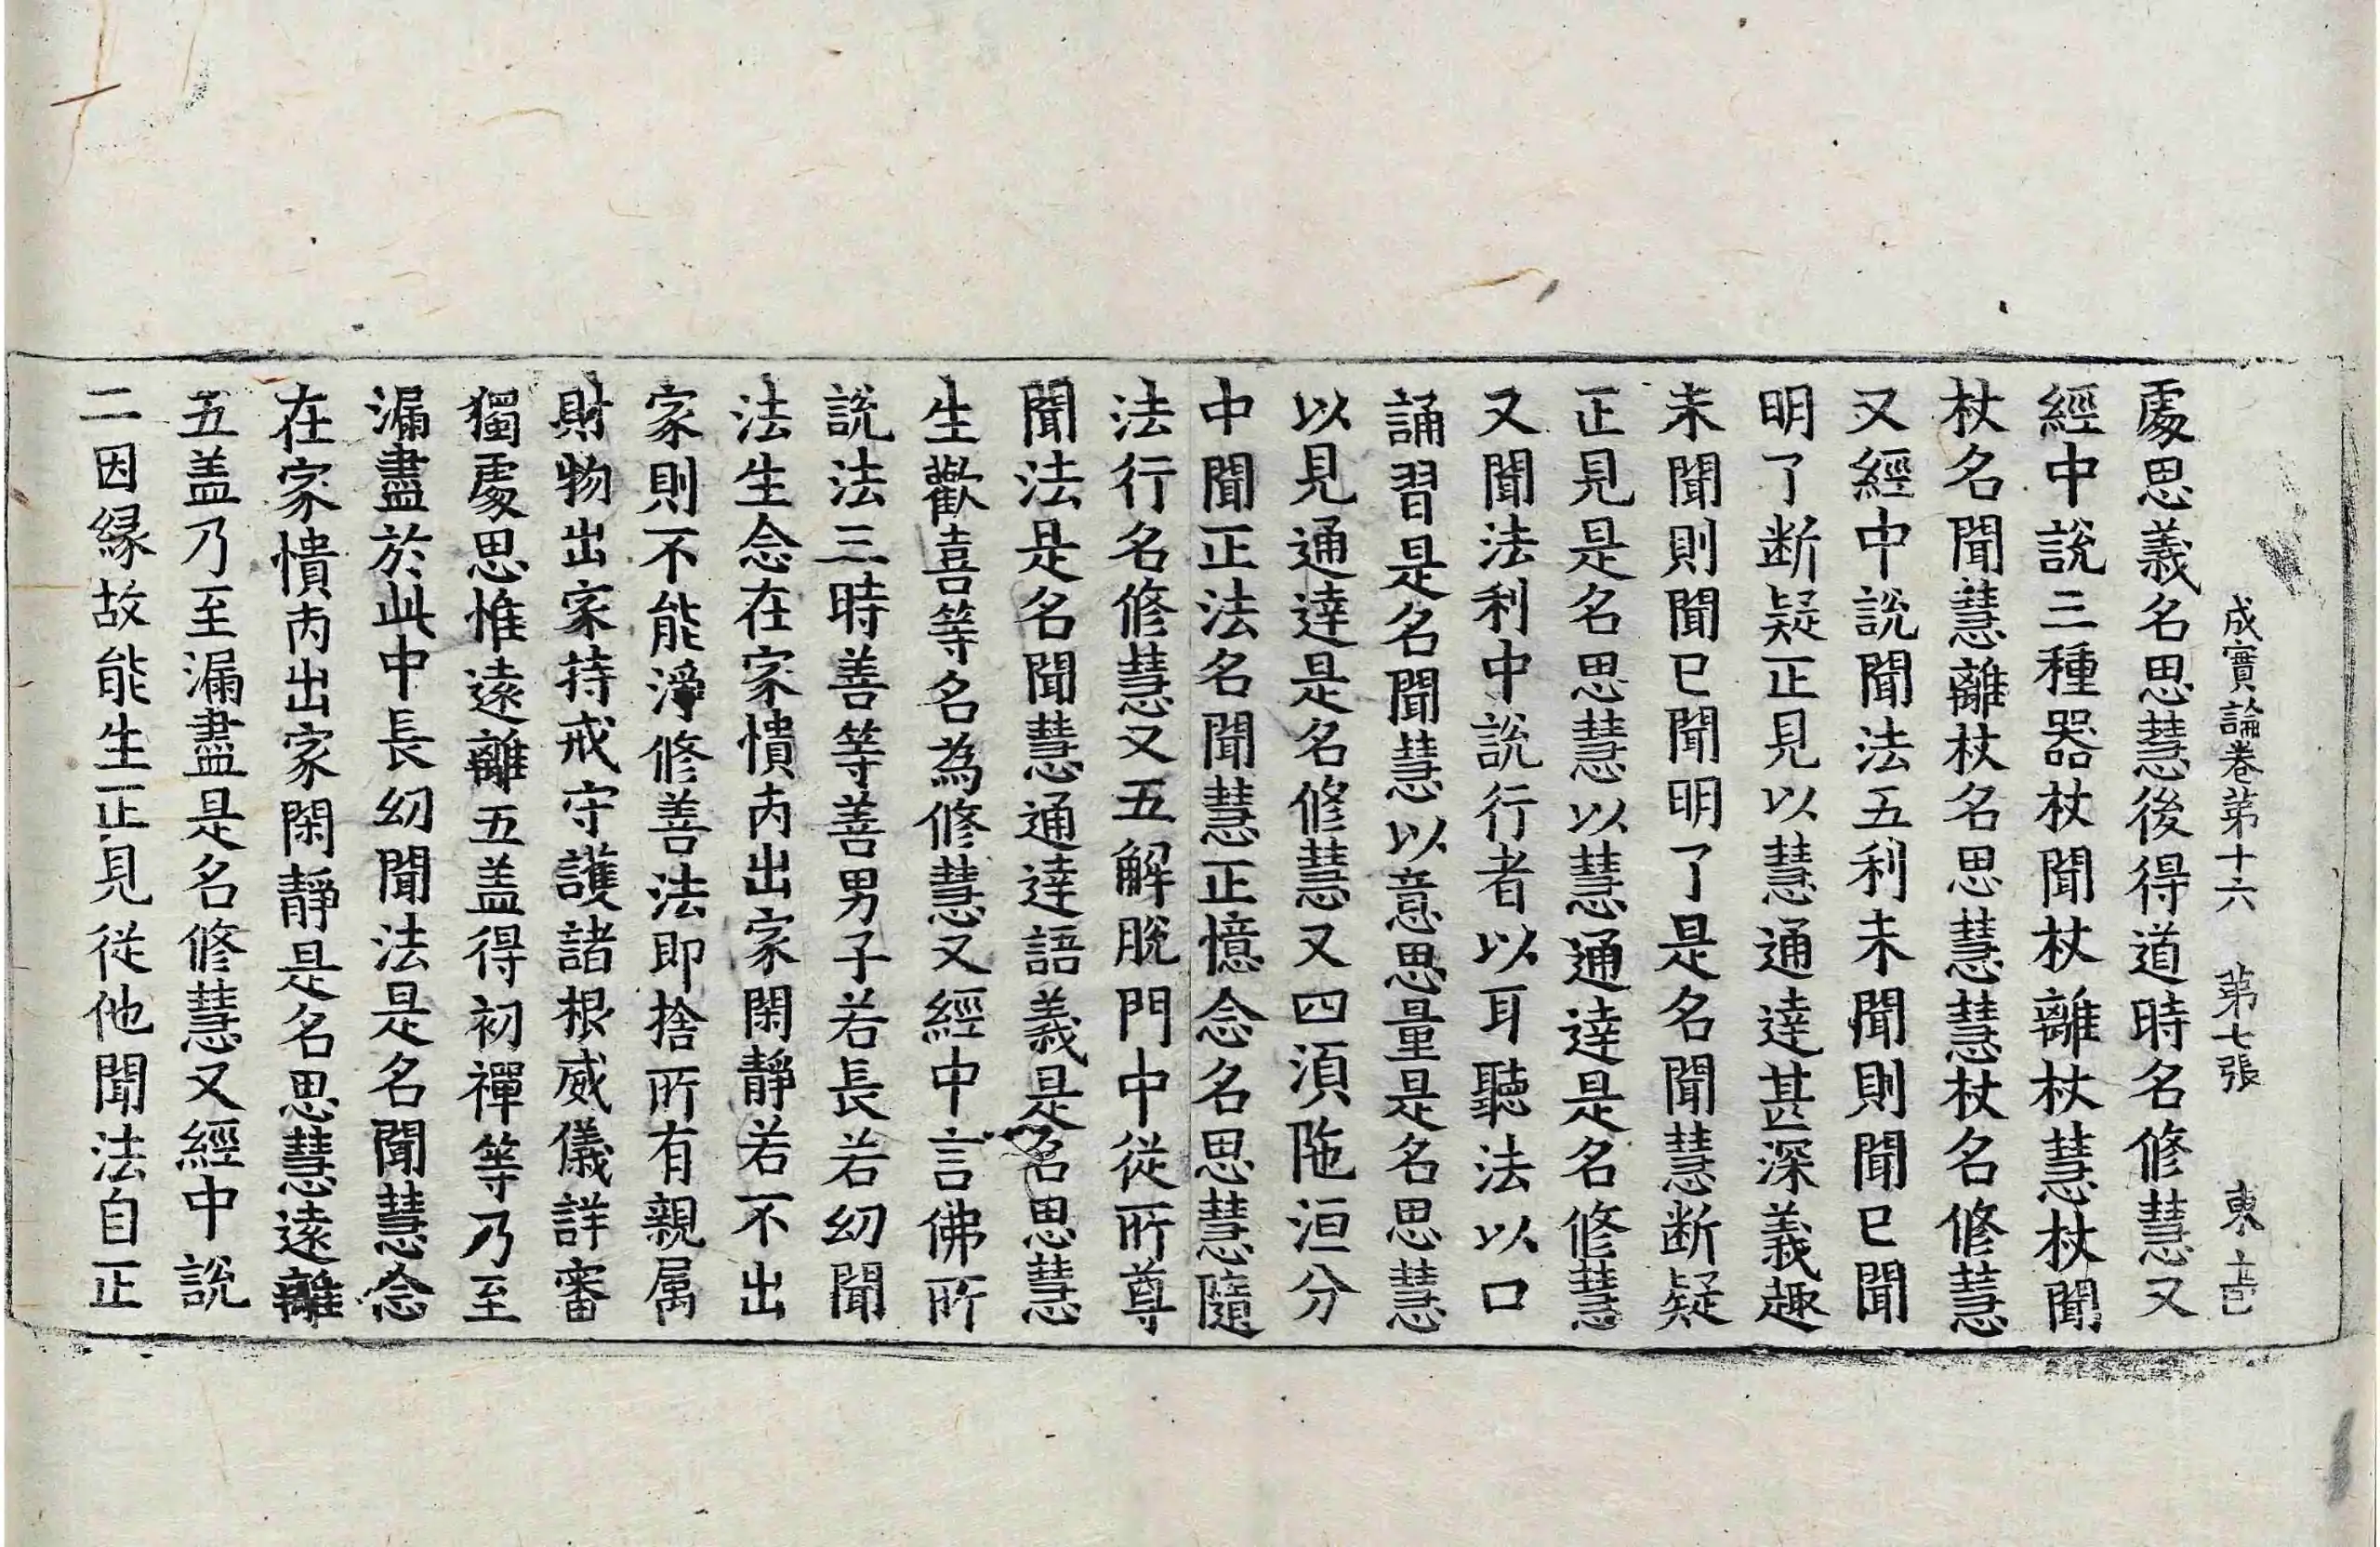 成實論卷第十六　第七張　東
處思義名思慧後得道時名修慧又
經中說三種器杖聞杖離杖慧杖聞
杖名聞慧離杖名思慧慧杖名修慧
又經中說聞法五利未聞則聞已聞
明了断疑正見以慧通達甚深義趣
未聞則聞已聞明了是名聞慧断疑
正見是名思慧以慧通達是名修慧
又聞法利中說行者以耳聽法以口
誦習是名聞慧以意思量是名思慧
以見通達是名修慧又四湏陁洹分
中聞正法名聞慧正憶念名思慧隨
法行名修慧又五解脫門中從所尊
聞法是名聞慧通達語義是名思慧
生歡喜等名為修慧又經中言佛所
說法三時善等善男子若長若幼聞
法生念在家憒丙出家閑靜若不出
家則不能淨修善法即捨所有親属
財物出家持戒守護諸根威儀詳審
獨處思惟遠離五盖得初禪等乃至
漏盡於此中長幼聞法是名聞慧念
在家憒丙出家閑靜是名思慧遠離
五盖乃至漏盡是名修慧又經中說
二因縁故能生正見從他聞法自正